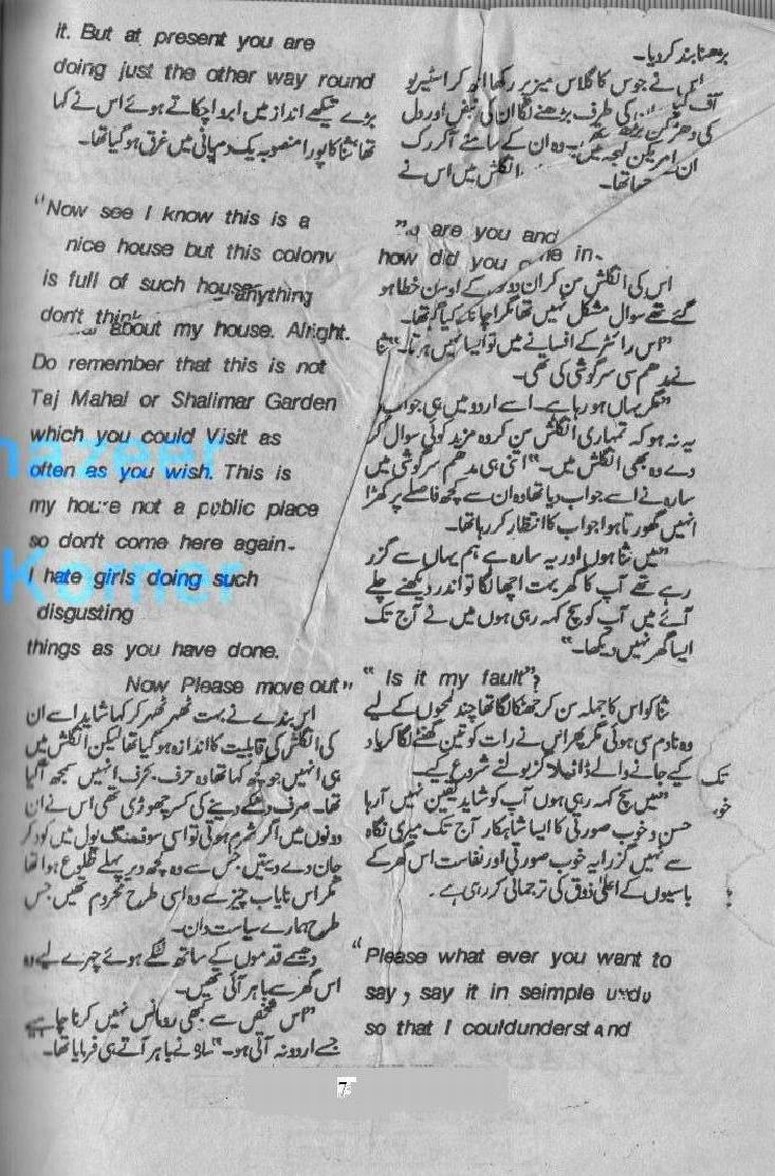 بڑھنا بند کر دیا۔
اس نے جوس کا گلاس میز پر رکھا اٹھ کر اسٹیریو
آف کیا کی طرف بڑھنے لگا ان کی نبض اور دل
کی دھڑکن بڑھ وہ ان کے سامنے آ کر رک
ان امریکن لہجہ میں انگلش میں اس نے
تھا۔
are you and
how did you in.
اس کی انگلش سن کر ان دونوں کے اوسان خطا ہو
گئے تھے سوال مشکل نہیں تھا مگر اچانک کیا گیا تھا۔
"اس رائٹر کے افسانے میں تو ایسا نہیں ہوتا۔" ثنا
نے مدھم سی سرگوشی کی تھی۔
"مگر یہاں ہو رہا ہے۔ اسے اردو میں ہی جواب
یہ نہ ہو کہ تمہاری انگلش سن کر وہ مزید کوئی سوال کر
دے وہ بھی انگلش میں۔" اتنی ہی مدھم سرگوشی میں
سارہ نے اسے جواب دیا تھا وہ ان سے کچھ فاصلے پر کھڑا
انہیں گھورتا ہوا جواب کا انتظار کر رہا تھا۔
"میں ثنا ہوں اور یہ سارہ ہے ہم یہاں سے گزر
رہے تھے آپ کا گھر بہت اچھا لگا تو اندر دیکھنے چلے
آئے میں آپ کو سچ کہہ رہی ہوں میں نے آج تک
ایسا گھر نہیں دیکھا۔"
" Is it my fault"?
ثنا کو اس کا جملہ سن کر جھٹکا لگا تھا چند لمحوں کے لیے
وہ نادم سی ہوئی مگر پھر اس نے رات کو تین گھنٹے لگا کر یاد
کیے جانے والے ڈائیلاگز بولنے شروع کیے۔
"میں سچ کہہ رہی ہوں آپ کو شاید یقین نہیں آ رہا
حسن و خوب صورتی کا ایسا شاہکار آج تک میری نگاہ
سے نہیں گزرا یہ خوب صورتی اور نفاست اس گھر کے
باسیوں کے اعلیٰ ذوق کی ترجمانی کر رہی ہے۔
"Please what ever you want to
say , say it in seimple urdu
so that I couldunderstand
it. But at present you are
doing just the other way round
بڑے تیکھے انداز میں ابرو اچکاتے ہوئے اس نے کہا
تھا، ثنا کا پورا منصوبہ یک دم پانی میں غرق ہو گیا تھا۔
"Now see I know this is a
nice house but this colony
is full of such house anything
don't think about my house. Alright.
Do remember that this is not
Taj Mahal or Shalimar Garden
which you could Visit as
often as you wish. This is
my house not a public place
so don't come here again.
I hate girls doing such
disgusting
things as you have done.
Now Please move out"
اس بندے نے بہت ٹھہر ٹھہر کر کہا شاید اسے ان
کی انگلش کی قابلیت کا اندازہ ہو گیا تھا لیکن انگلش میں
ہی انہیں جو کچھ کہا تھا وہ حرف بہ حرف انہیں سمجھ آ گیا
تھا۔ صرف دھکے دینے کی کسر چھوڑی تھی اس نے ان
دونوں میں اگر شرم ہوتی تو اسی سوئمنگ پول میں کود کر
جان دے دیتیں جس سے وہ کچھ دیر پہلے طلوع ہوا تھا
مگر اس نایاب چیز سے وہ اسی طرح محروم تھیں جس
طرح ہمارے سیاست دان۔
دھیمے قدموں کے ساتھ لٹکے ہوئے چہرے لیے وہ
اس گھر سے باہر آئی تھیں۔
"اس شخص سے کبھی رومانس نہیں کرنا چاہیے
جسے اردو نہ آتی ہو۔" سارہ نے باہر آتے ہی فرمایا تھا۔
تک
7
nazeer
Korner